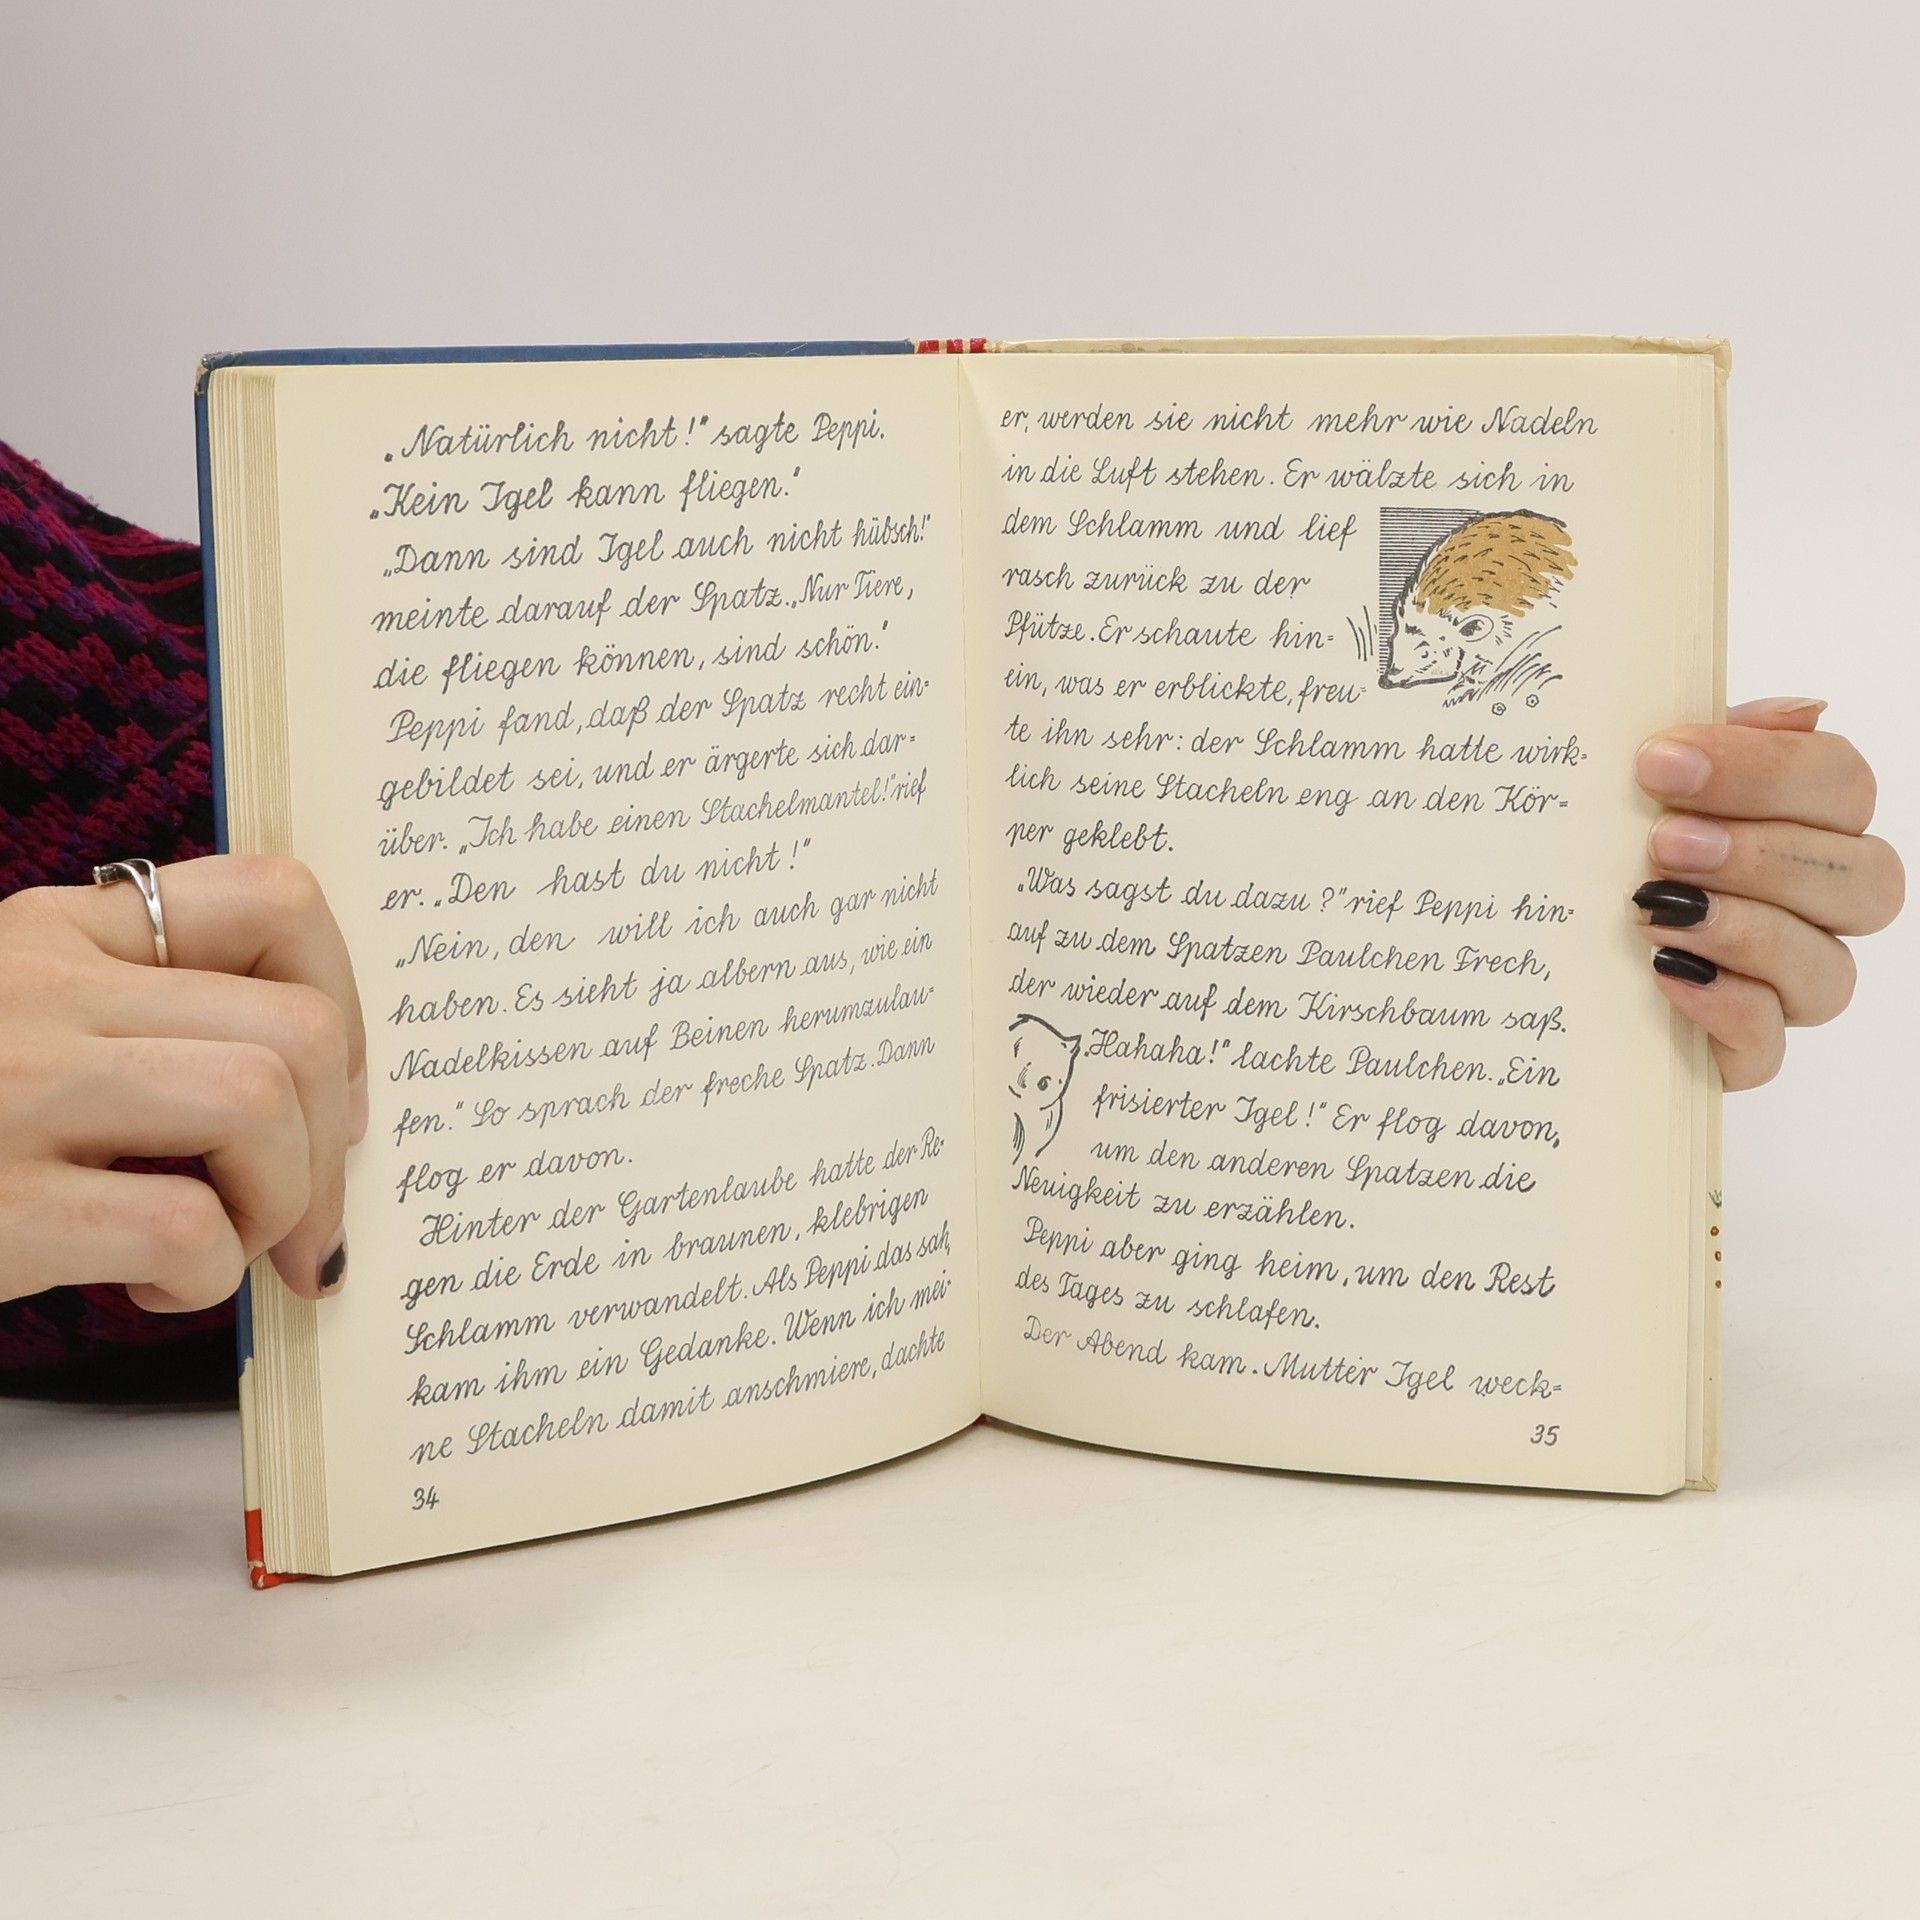 „Natürlich nicht!“ sagte Peppi.
„Kein Igel kann fliegen.“
„Dann sind Igel auch nicht hübsch!“
meinte darauf der Spatz. „Nur Tiere,
die fliegen können, sind schön.“
Peppi fand, daß der Spatz recht ein=
gebildet sei, und er ärgerte sich dar=
über. „Ich habe einen Stachelmantel!“ rief
er. „Den hast du nicht!“
„Nein, den will ich auch gar nicht
haben. Es sieht ja albern aus, wie ein
Nadelkissen auf Beinen herumzulau=
fen.“ So sprach der freche Spatz. Dann
flog er davon.
Hinter der Gartenlaube hatte der Re=
gen die Erde in braunen, klebrigen
Schlamm verwandelt. Als Peppi das sah,
kam ihm ein Gedanke. Wenn ich mei=
ne Stacheln damit anschmiere, dachte
34
er, werden sie nicht mehr wie Nadeln
in die Luft stehen. Er wälzte sich in
dem Schlamm und lief
rasch zurück zu der
Pfütze. Er schaute hin=
ein, was er erblickte, freu=
te ihn sehr: der Schlamm hatte wirk=
lich seine Stacheln eng an den Kör=
per geklebt.
„Was sagst du dazu?“ rief Peppi hin=
auf zu dem Spatzen Paulchen Frech,
der wieder auf dem Kirschbaum saß.
„Hahaha!“ lachte Paulchen. „Ein
frisierter Igel!“ Er flog davon,
um den anderen Spatzen die
Neuigkeit zu erzählen.
Peppi aber ging heim, um den Rest
des Tages zu schlafen.
Der Abend kam. Mutter Igel weck=
35